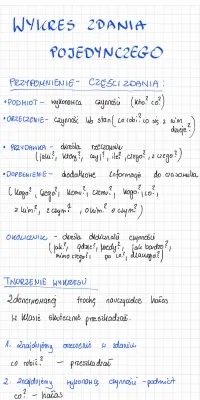 WYKRES ZDANIA
POJEDYNCZEGO
PRZYPOMNIENIE - CZĘŚCI ZDANIA:
• PODMIOT - wykonawca czynności (kto? co?)
• ORZECZENIE - czynność lub stan (co robi? co się z nim
dzieje?)
• PRZYDAWKA - określa rzeczownik
(jaki?, który?, czyj?, ile?, czego?, z czego?)
• DOPEŁNIENIE - dodatkowe informacje do czasownika
(kogo?, czego?, komu?, czemu?, kogo?, co?,
z kim?, z czym?, o kim? o czym?)
OKOLICZNIK - określa okoliczności czynności
(jak?, gdzie?, kiedy?, jak bardzo?,
mimo czego?, po co?, dlaczego?)
TWORZENIE WYKRESU
Zdenerwowaną trochę nauczycielkę hałas
w klasie skutecznie przestraszał.
1. znajdujemy orzeczenie w zdaniu
co robił? — przestraszał
2. Znajdujemy wykonawcę czynności - podmiot
co? - hałas